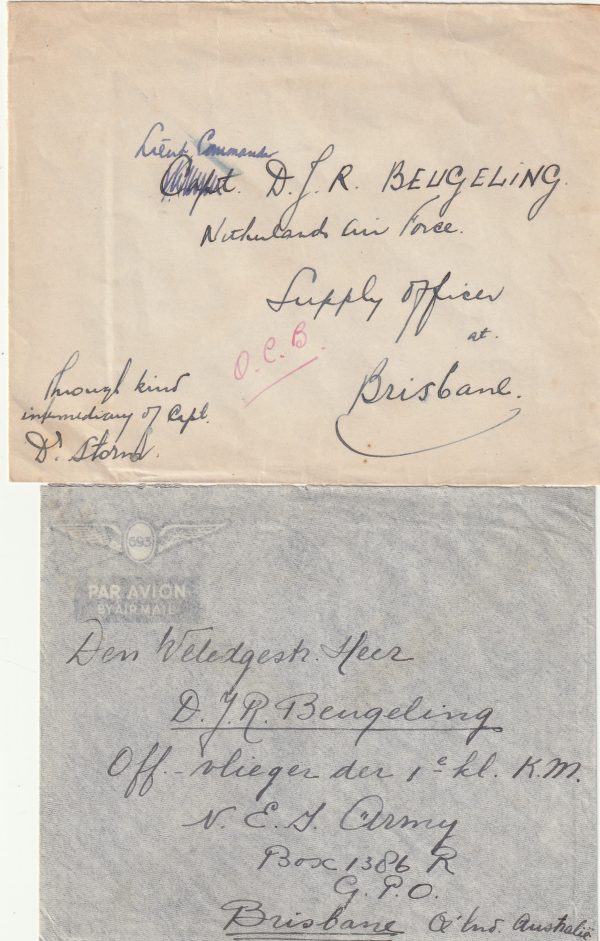 Lieut Commander
Capt. D. J. R. BEUGELING.
Netherlands Air Force.
Supply officer
at.
Brisbane.
O.C.B.
Through kind
intermediary of Capt.
Dr. Storm.
693
PAR AVION
BY AIR MAIL
Den Weledgestr. Heer
D. J. R. Beugeling
Off.-vlieger der 1e kl. K.M.
N. E. I. Army
Box 1386 R
G.P.O.
Brisbane Australië